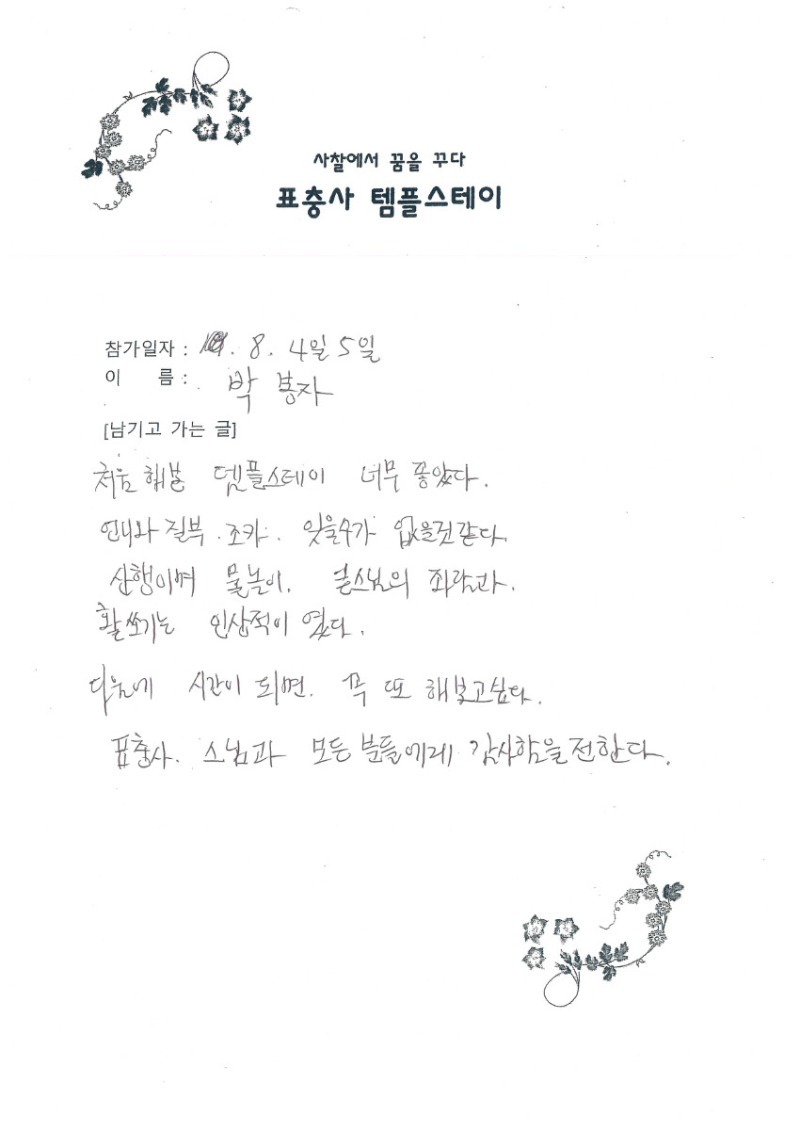 사찰에서 꿈을 꾸다
표충사 템플스테이
참가일자 : . 8. 4일 5일
이 름 : 박 봉자
[남기고 가는 글]
처음 해본 템플스테이 너무 좋았다.
언니와 질부. 조카. 잊을수가 없을것같다.
산행이며 물놀이. 스님의 좌담과.
활쏘기는 인상적이 였다.
다음에 시간이 되면. 꼭 또 해보고싶다.
표충사. 스님과 모든 분들에게 감사함을전한다.